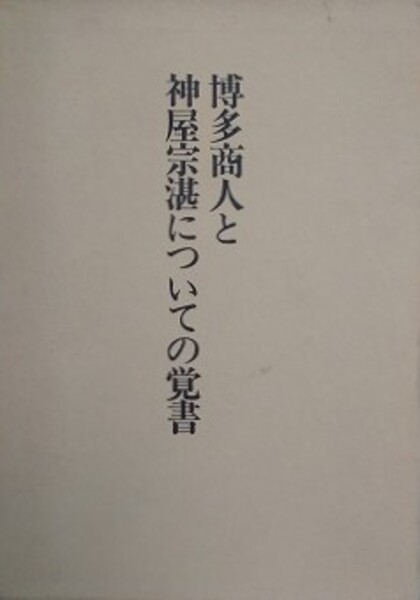 博多商人と
神屋宗湛についての覚書